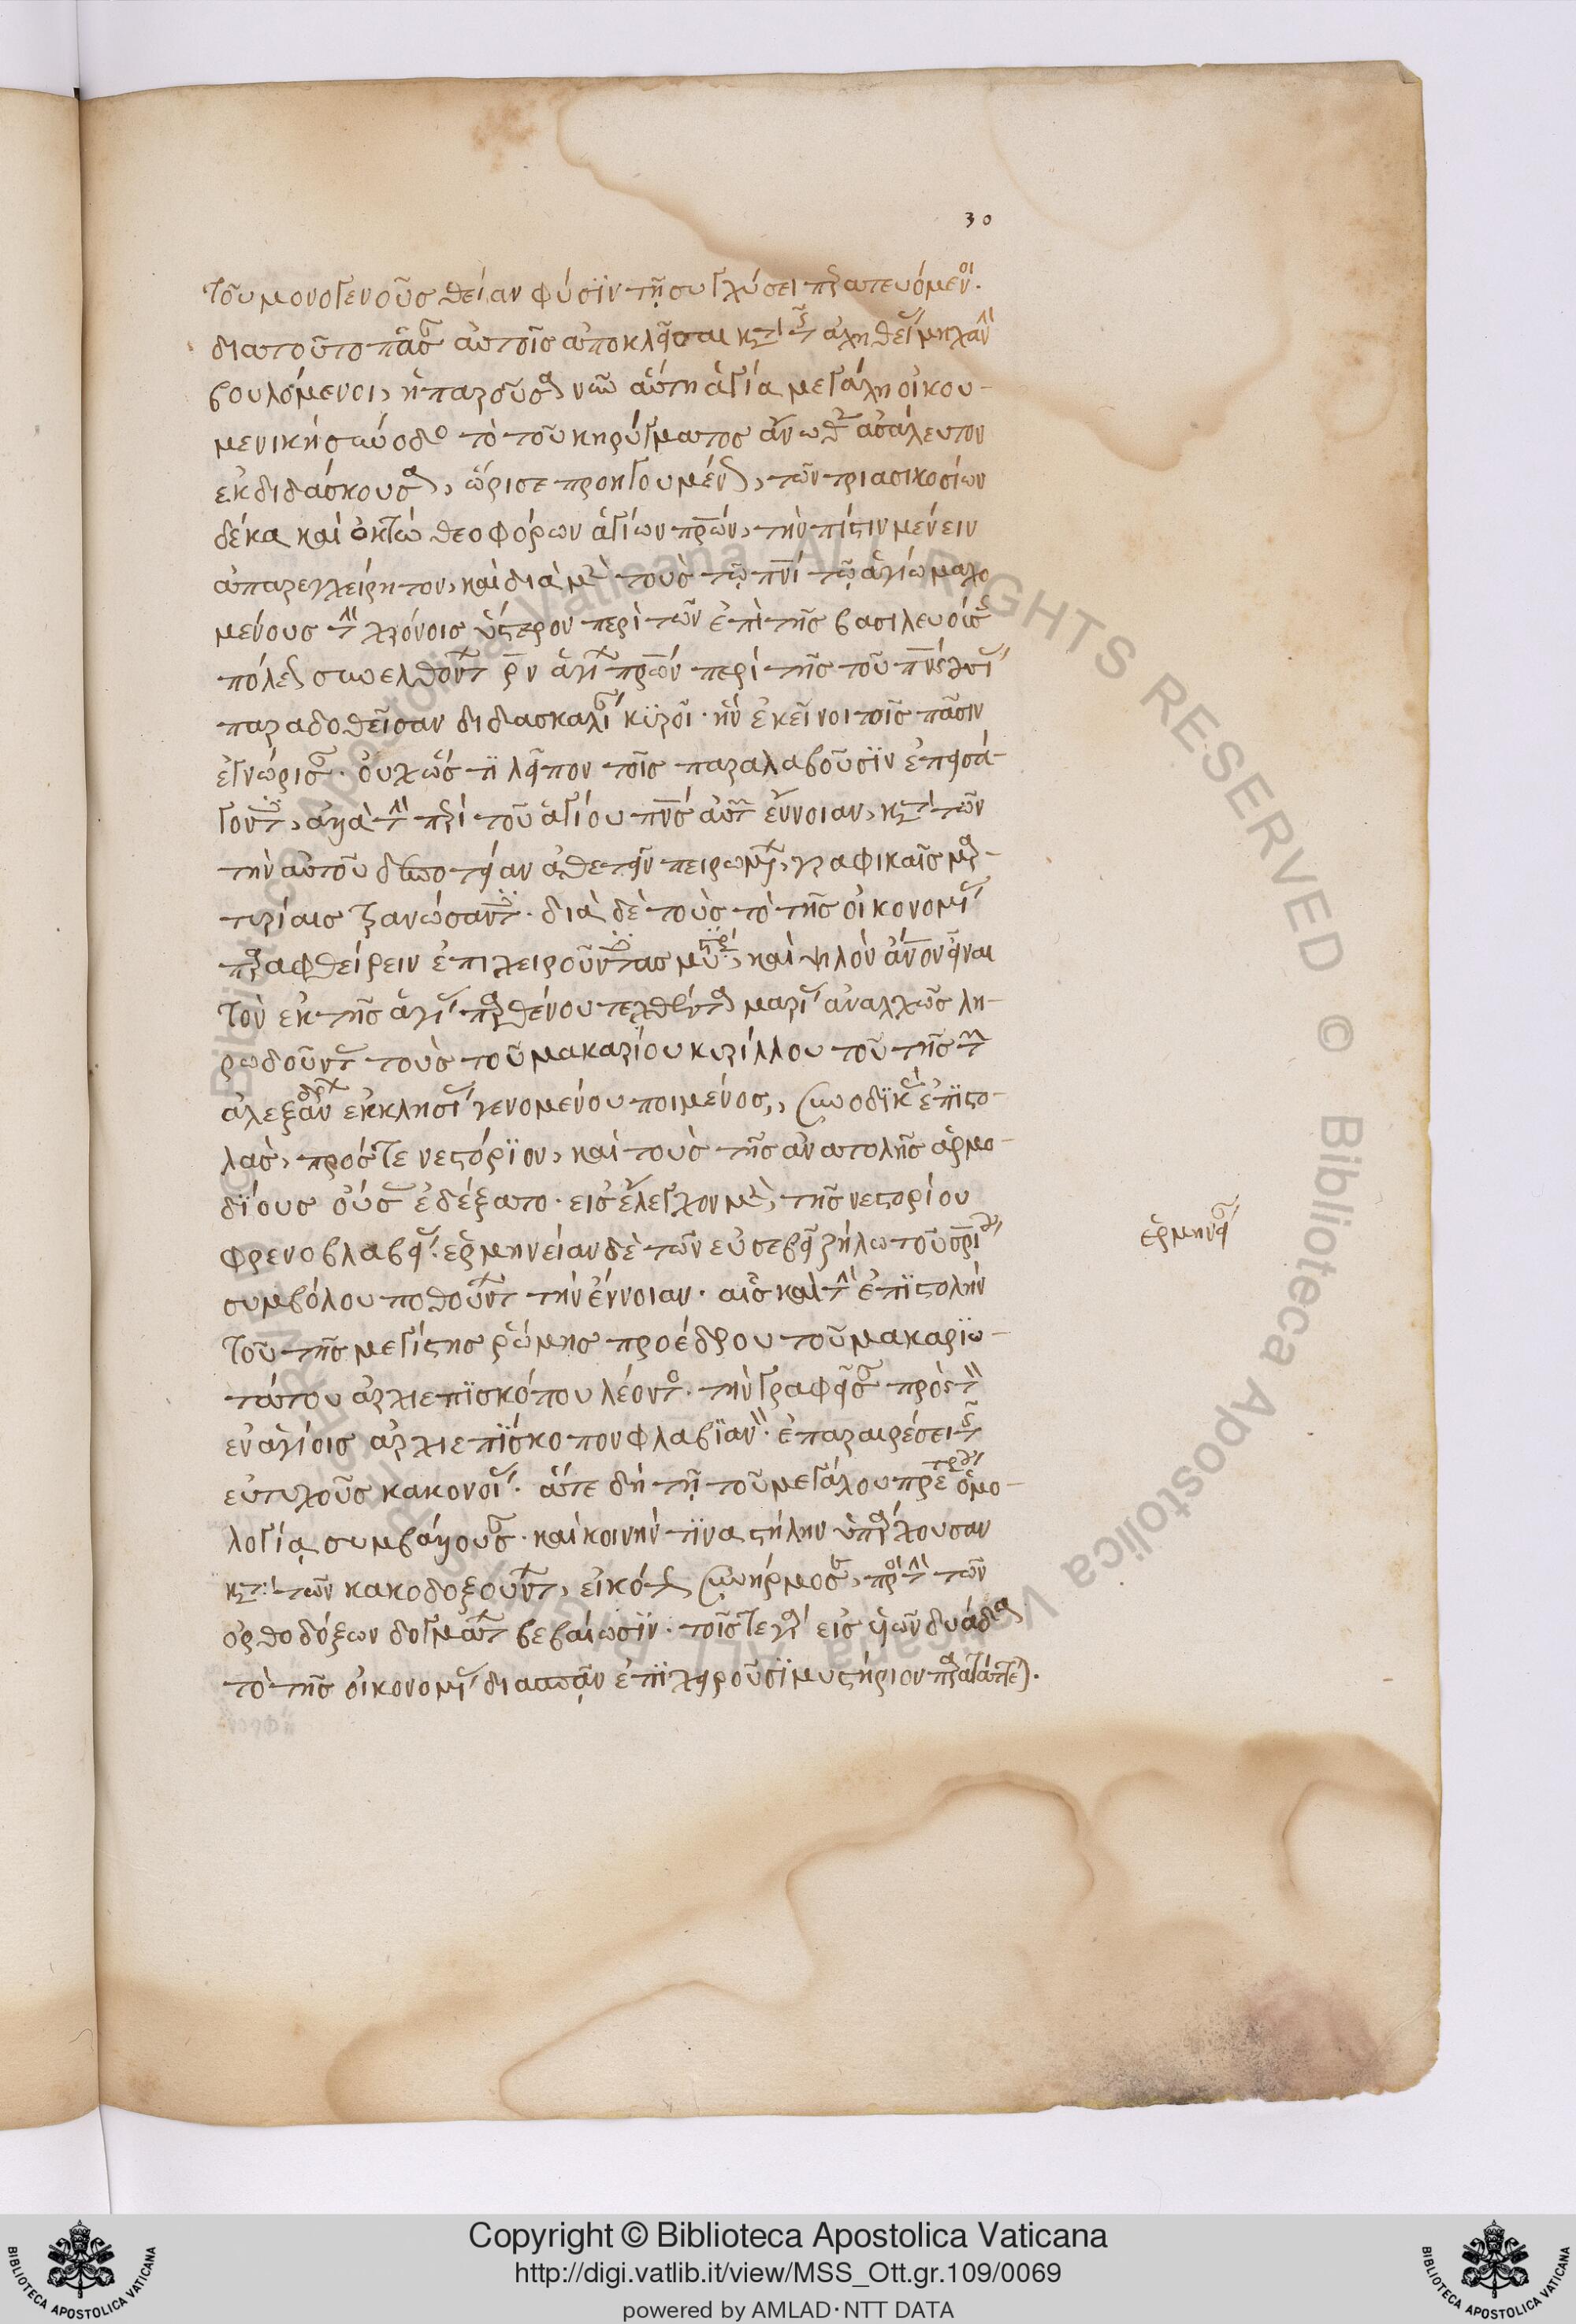 30
τοῦ μονογενοῦς θείαν φύσϊν τῇ συγχύσει τερατευόμενοι.
διατοῦτο πᾶσαν αὐτοῖς ἀποκλεῖσαι κατὰ τῆς ἀληθείας μηχανὴν
βουλόμενοι, ἡ παροῦσα νῦν αὕτη ἁγία μεγάλη οἰκου-
μενικὴ σύνοδος τὸ τοῦ κηρύγματος ἄνωθεν ἀσάλευτον
ἐκδιδάσκουσα, ὥρισε προηγουμένως, τῶν τριακοσίων
δέκα καὶ ὀκτὼ θεοφόρων ἁγίων πρων, τὴν πίστιν μένειν
ἀπαρεγχείρητον, καὶ διὰ μὲν τοὺς τῷ πνι τῷ ἁγίω μαχο
μένους τὴν χρόνοις ὕστερον περὶ τῶν ἐπὶ τῆς βασιλευούσης
πόλεως συνελθόντων ρν ἁγίων πρων περὶ τῆς τοῦ πνς οὐσίας
παραδοθεῖσαν διδασκαλίαν κυροῖ. ἣν ἐκεῖνοι τοῖς πᾶσιν
ἐγνώρισαν. οὐχ ὥς τι λεῖπον τοῖς παραλαβοῦσϊν ἐπεισά-
γοντες, ἀλλὰ τὴν περὶ τοῦ ἁγίου πνς αὐτῶν ἔννοιαν, κατὰ τῶν
τὴν αὐτοῦ δεσποτείαν ἀθετεῖν πειρωμένων, γραφικαῖς μαρ-
τυρίαις τρανώσαντες. διὰ δὲ τοὺς τὸ τῆς οἰκονομίας
παραφθείρειν ἐπιχειροῦντας μυστήριον, καὶ ψιλὸν ἄνον εἶναι
τὸν ἐκ τῆς ἁγίας παρθένου τεχθέντα μαρίας ἀναιδῶς λη-
ρωδοῦντας τοὺς τοῦ μακαρίου κυρίλλου τοῦ τῆς τῶν
ἀλεξανδρέων ἐκκλησίας γενομένου ποιμένος, συνοδϊκὰς ἐπϊστο-
λὰς, πρός τε νεστόρϊον, καὶ τοὺς τῆς ἀνατολῆς ἁρμο-
δΐους οὔσας ἐδέξατο. εἰς ἔλεγχον μὲν, τῆς νεστορίου
φρενοβλαβείας. ἑρμηνείαν δὲ τῶν εὐσεβεῖ ζήλω τοῦ σριου
ἑρμηνεία
συμβόλου ποθούντων τὴν ἔννοιαν. αἷς καὶ τὴν ἐπϊστολὴν
τοῦ τῆς μεγίστης ῥώμης προέδρου τοῦ μακαρϊω-
τάτου ἀρχιεπϊσκόπου λέοντος. τὴν γραφεῖσαν πρὸς τὸν
ἐν ἁγίοις ἀρχιεπΐσκοπον φλαβϊανὸν. ἐπαναιρέσει τῆς
εὐτυχοῦς κακονοίας. ἅτε δὴ τῇ τοῦ μεγάλου πέτρου ὁμο-
λογίᾳ συμβαίνουσαν. καὶ κοινήν τϊνα στήλην ὑπάρχουσαν
κατὰ τῶν κακοδοξούντων, εἰκότως συνήρμοσε, πρὸς τὴν τῶν
ὀρθοδόξων δογμάτων βεβαίωσϊν. τοῖς τε γὰρ εἰς υἱῶν δυάδα
τὸ τῆς οἰκονομίας διασπᾶν ἐπϊχειροῦσϊ μυστήριον παρατάττεται.